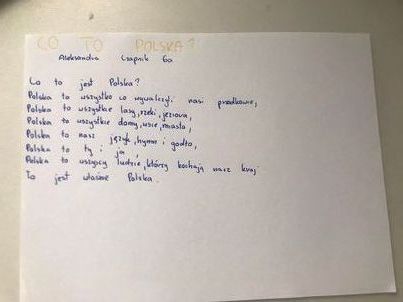 CO TO POLSKA?
Aleksandra Czapnik 6a
Co to jest Polska?
Polska to wszystko co wywalczyli nasi przodkowie,
Polska to wszystkie lasy, rzeki, jeziora,
Polska to wszystkie domy, wsie, miasta,
Polska to nasz język, hymn i godło,
Polska to ty i ja,
Polska to wszyscy ludzie, którzy kochają nasz kraj.
To jest właśnie Polska.